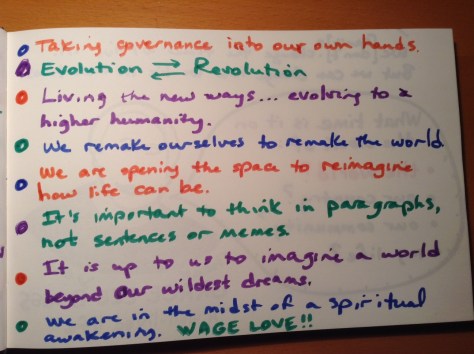 Taking governance into our own hands.
Evolution ⇄ Revolution
Living the new ways... evolving to a
higher humanity.
We remake ourselves to remake the world.
We are opening the space to reimagine
how life can be.
It's important to think in paragraphs,
not sentences or memes.
It is up to us to imagine a world
beyond our wildest dreams.
We are in the midst of a spiritual
awakening. WAGE LOVE!!